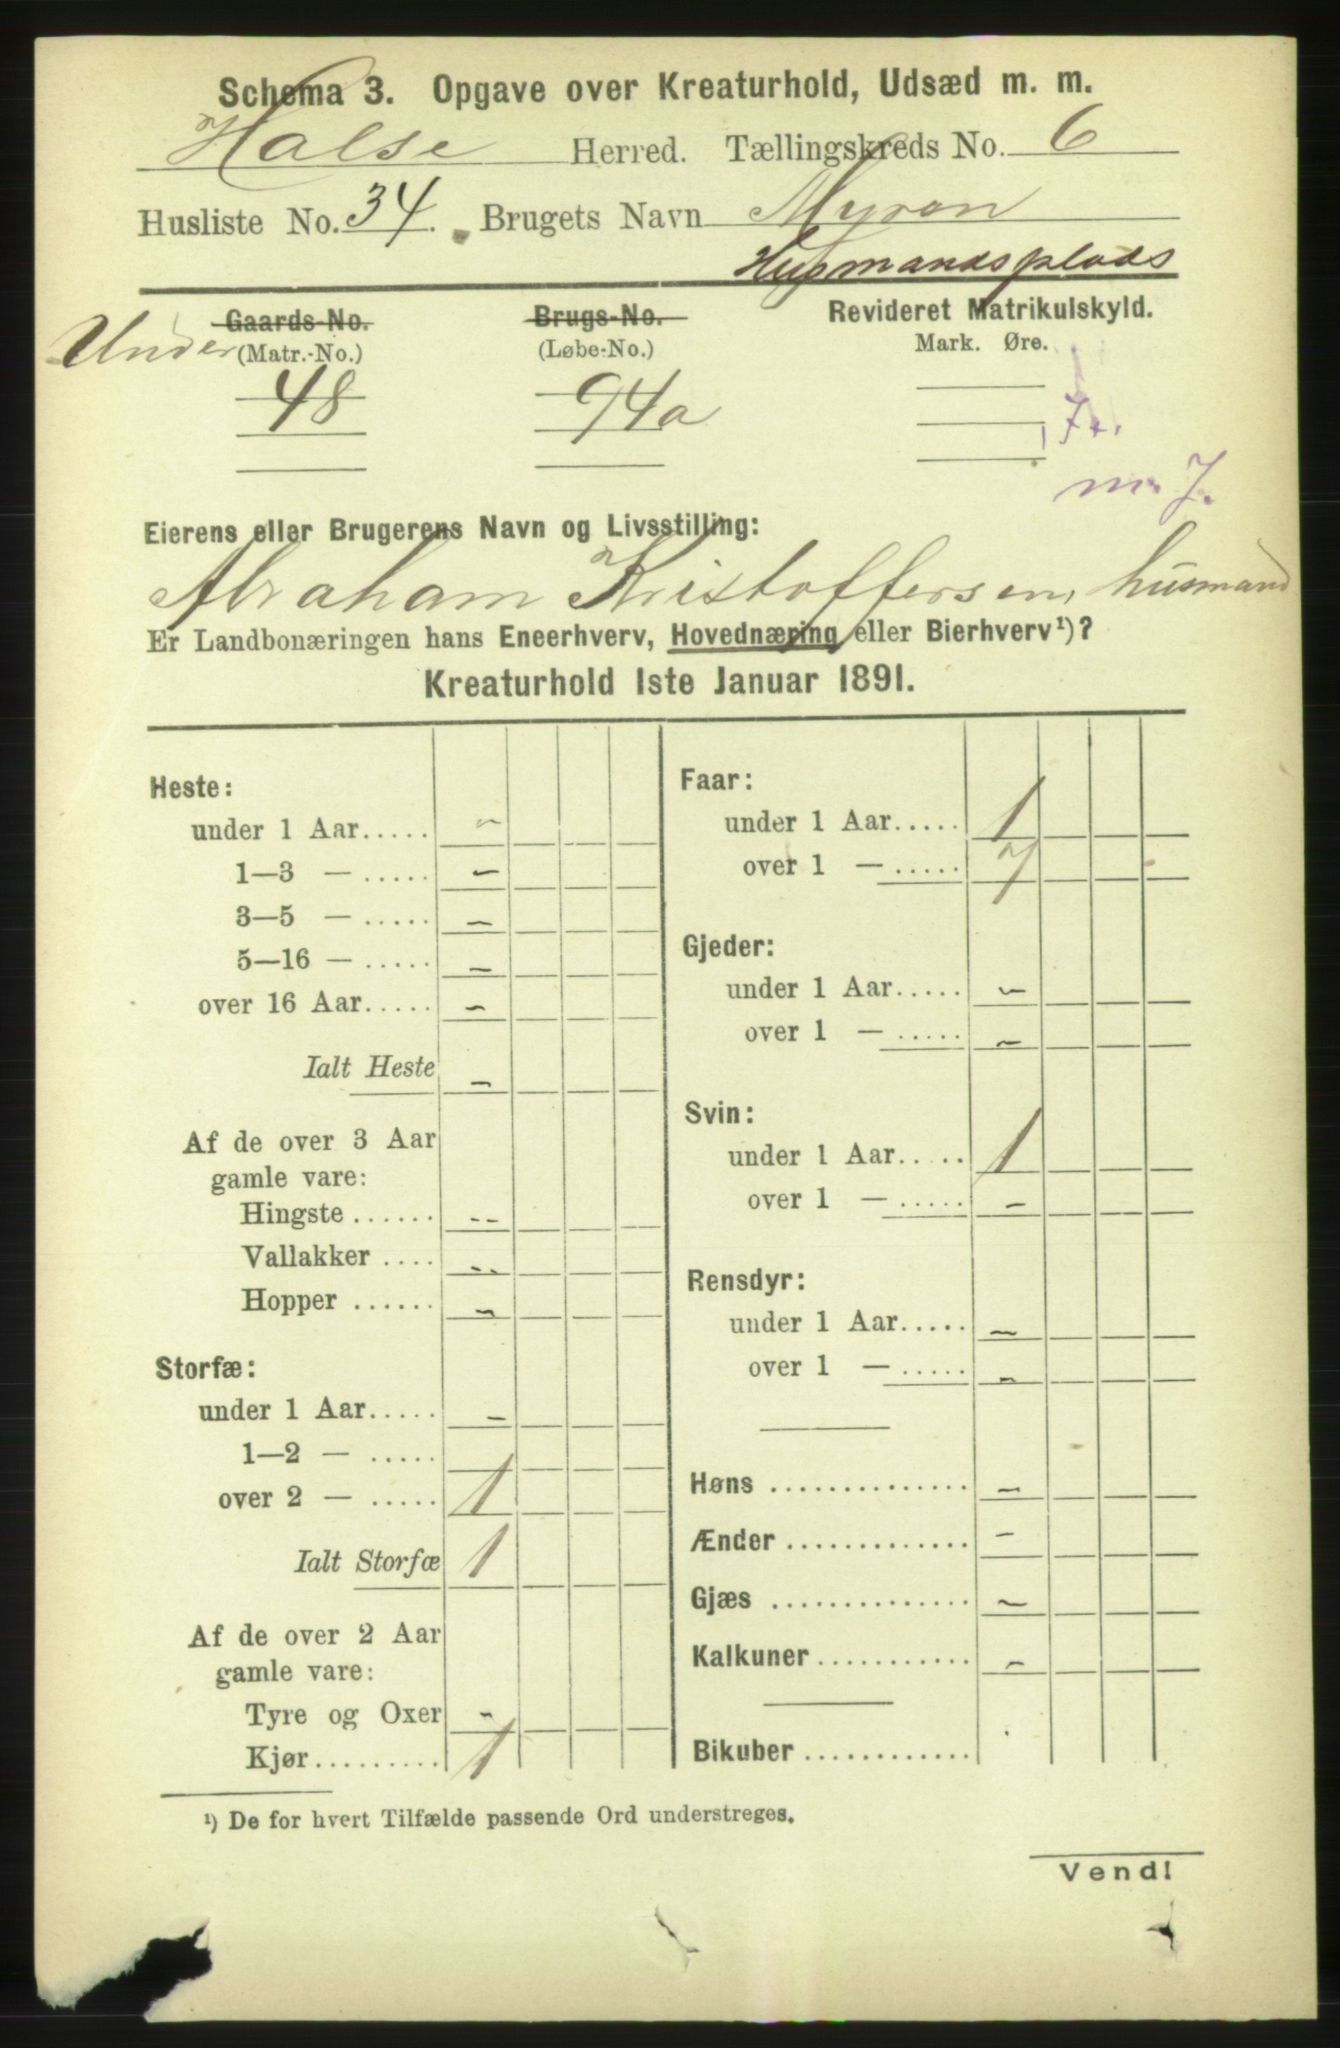 Schema 3. Opgave over Kreaturhold, Udsæd m. m.
Halse Herred. Tællingskreds No. 6
Husliste No. 34. Brugets Navn Myron
Husmandsplads
Under Gaards-No. Brugs-No. Revideret Matrikulskyld.
(Matr.-No.) (Løbe-No.) Mark. Øre.
48 94a
m. 7.
Eierens eller Brugerens Navn og Livsstilling:
Abraham Kristoffersen, husmand
Er Landbonæringen hans Eneerhverv, Hovednæring eller Bierhverv¹)?
Kreaturhold 1ste Januar 1891.
Heste:
under 1 Aar..... -
1—3 — ..... -
3—5 — ..... -
5—16 — ..... -
over 16 Aar..... -
Ialt Heste -
Af de over 3 Aar
gamle vare:
Hingste ...... --
Vallakker .... --
Hopper ...... -
Storfæ:
under 1 Aar..... -
1—2 — .....
over 2 — ..... 1
Ialt Storfæ 1
Af de over 2 Aar
gamle vare:
Tyre og Oxer -
Kjør......... 1
Faar:
under 1 Aar..... 1
over 1 — ..... 7
Gjeder:
under 1 Aar..... -
over 1 — ..... -
Svin:
under 1 Aar..... 1
over 1 — ..... -
Rensdyr:
under 1 Aar..... -
over 1 — ..... -
Høns .............. -
Ænder ............. -
Gjæs .............. -
Kalkuner ........... -
Bikuber ............
¹) De for hvert Tilfælde passende Ord understreges.
Vend!